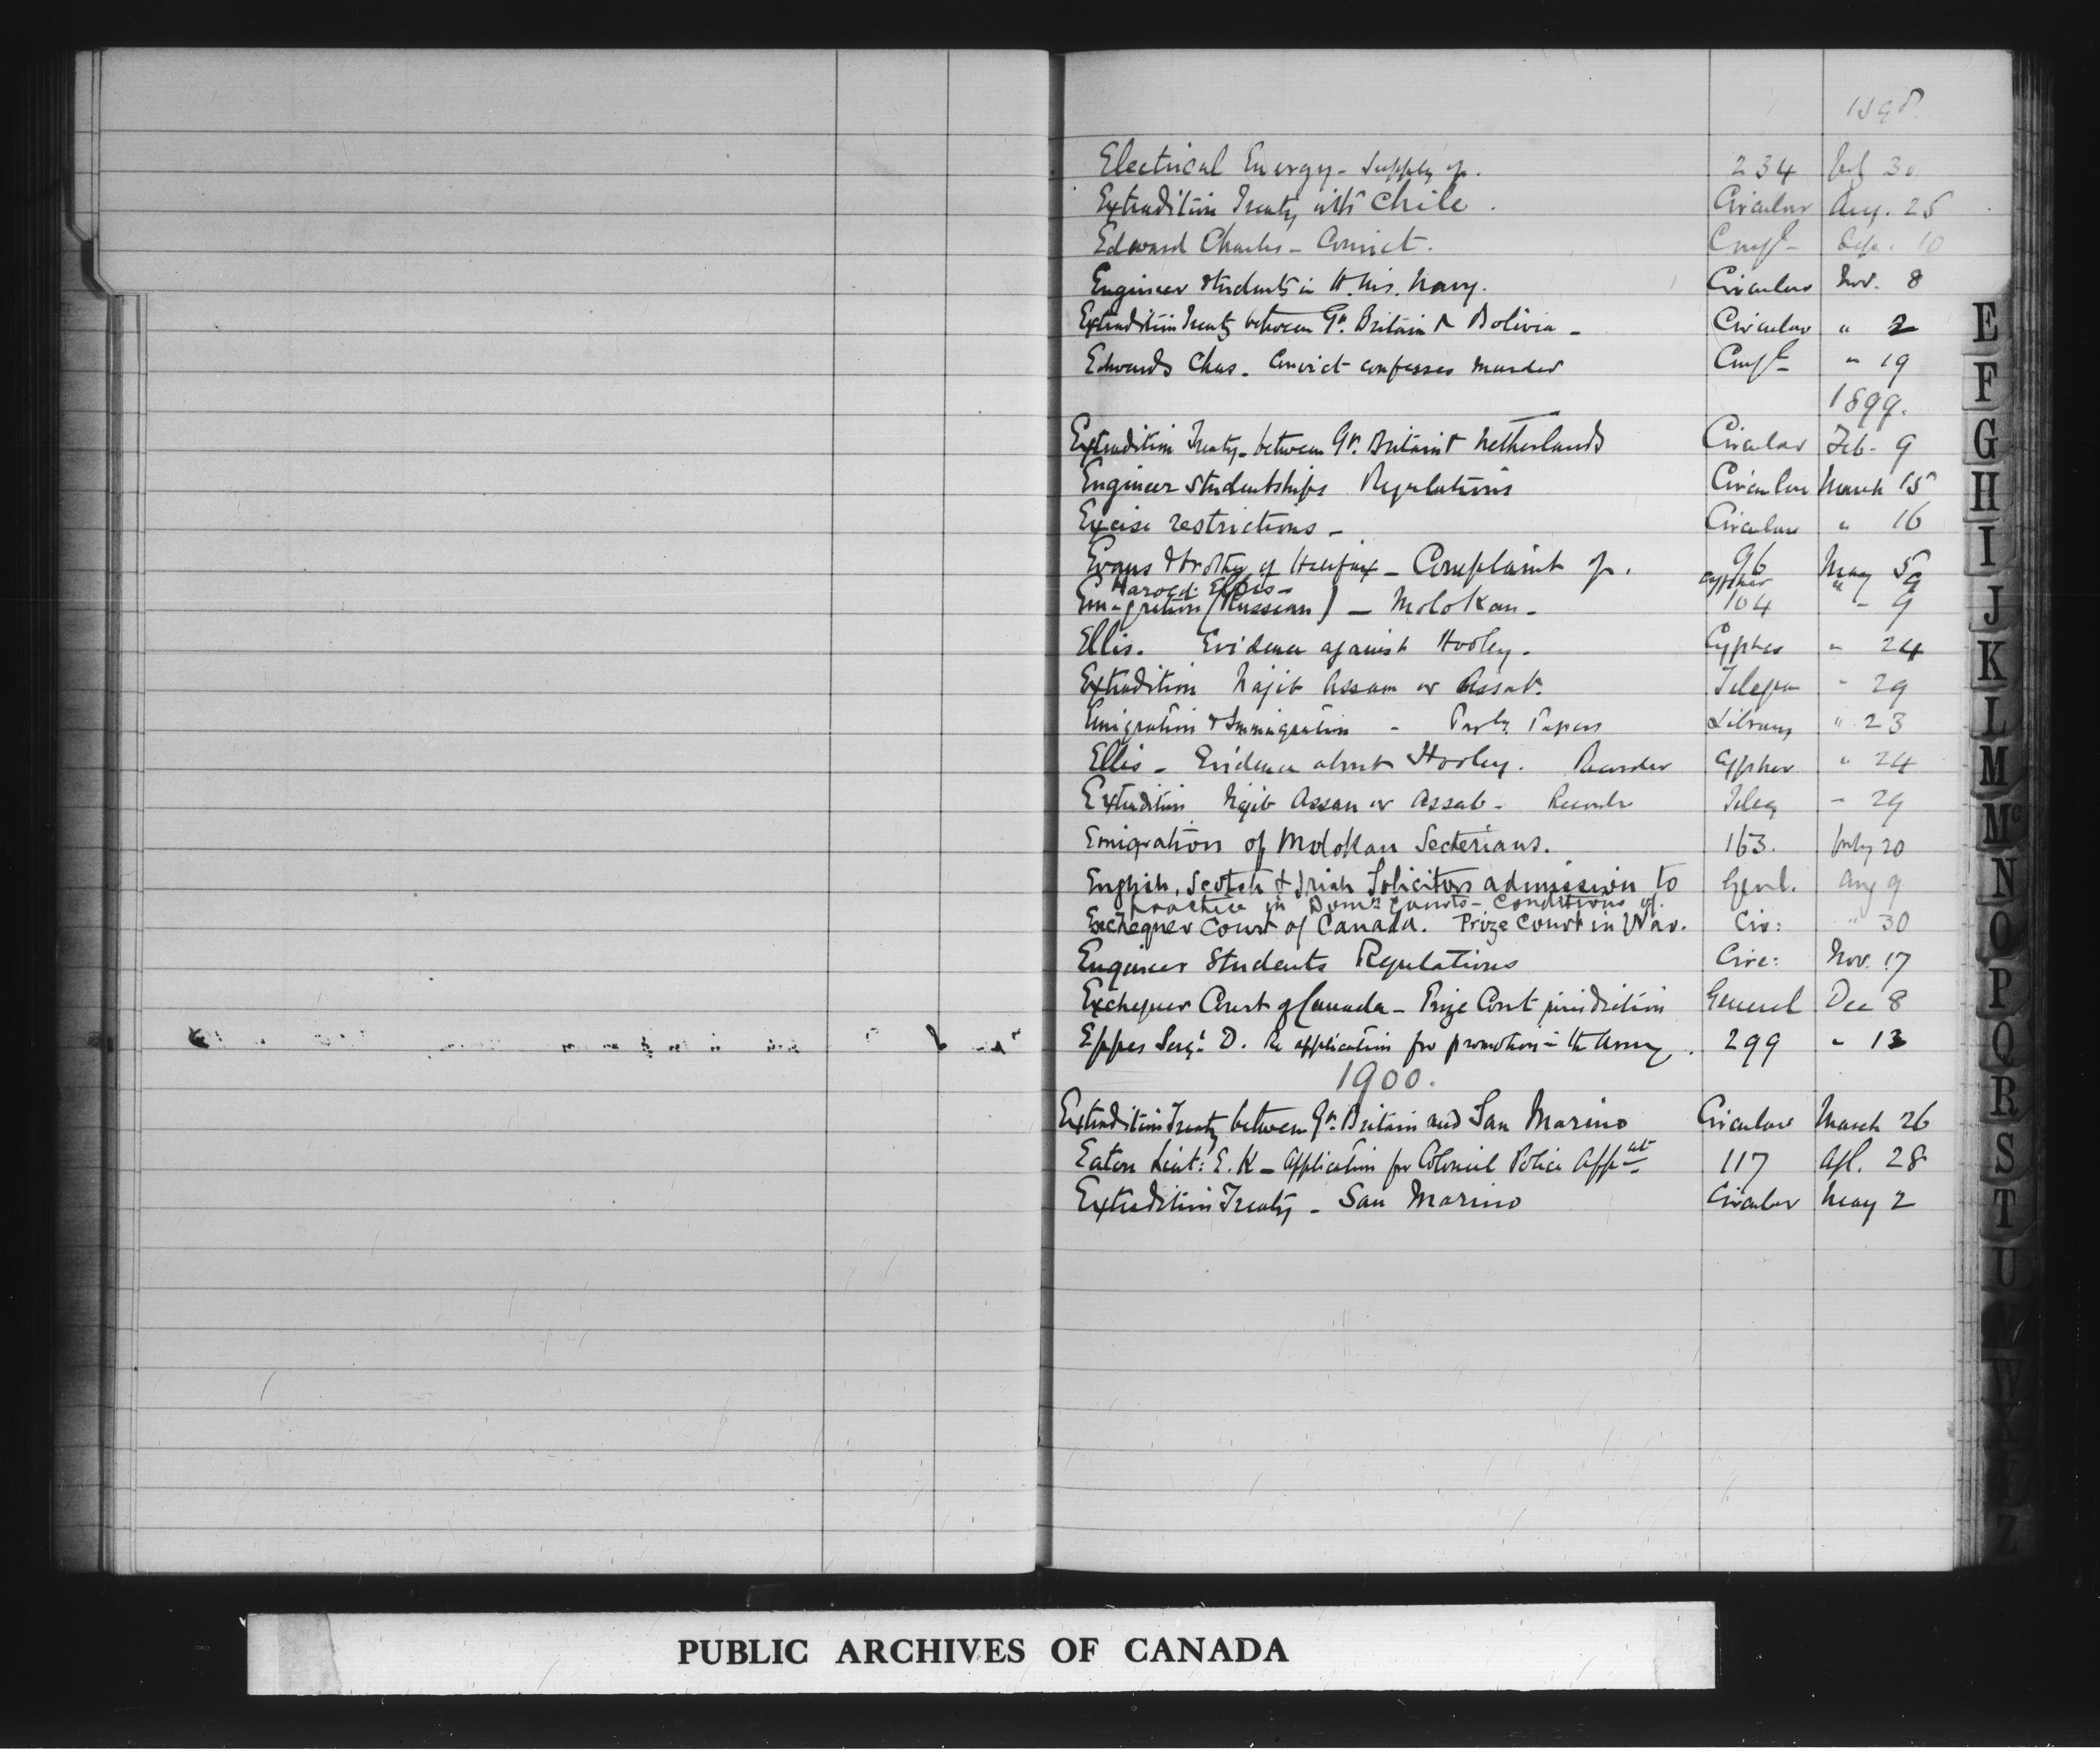 1898
Electrical Energy - Supply of. 234 July 30
Extradition Treaty with Chile. Circular Aug. 25
Edward Charles - Convict. Conf'l 10
Engineer Students in H. M's. Navy. Circular Nov. 8
Extradition Treaty between Gt. Britain & Bolivia - Circular " 2
Edwards Chas. Convict confesses murder Conf'l " 19
1899.
Extradition Treaty - between Gt. Britain & Netherlands Circular Feb. 9
Engineer Studentships Regulations Circular March 15
Excise restrictions - Circular " 16
Evans & Brothy of Halifax - Complaint of. 96 May 5
Harold Ellis - cypher " 9
Emigration (Russian) - Molokan - 104 " 9
Ellis. Evidence against Hooley. Cypher " 24
Extradition Najib Assam or Assab. Telegm " 29
Emigration & Immigration - Parly. Papers Library " 23
Ellis - Evidence about Hooley. Recorder Cypher " 24
Extradition Najib Assan or Assab - Recorder Teleg " 29
Emigration of Molokan Secterians. 163. July 20
English, Scotch & Irish Solicitors admission to Genl. Aug 9
practice in Domn Courts - Conditions of.
Exchequer Court of Canada. Prize Court in War. Cir: " 30
Engineer Students Regulations Circ: Nov. 17
Exchequer Court of Canada - Prize Court jurisdiction General Dec 8
Eppes Sergt. D. Re application for promotion in the Army. 299 " 13
1900.
Extradition Treaty between Gt. Britain and San Marino Circular March 26
Eaton Lieut: E. K - Application for Colonial Police Appnt. 117 Apl. 28
Extradition Treaty - San Marino Circular May 2
E
F
G
H
I
J
K
L
M
Mc
N
O
P
Q
R
S
T
U
V
W
X
Z
PUBLIC ARCHIVES OF CANADA